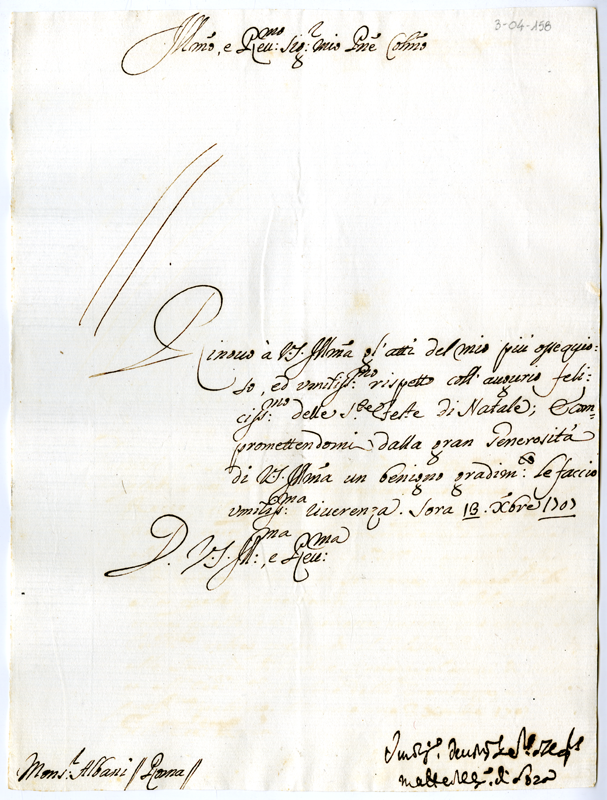 3-04-158
Illmo, e Reu:mo Sig:r mio Pne Colmo
Rinouo à V.S. Illma gl'atti del mio più ossequio:
so, ed vmiliss:mo rispetto coll'augurio feli:
ciss:mo delle S:te Feste di Natale; E com-
promettendomi dalla gran Generosità
di V.S. Illma un benigno gradim:to le faccio
vmiliss:ma riuerenza. Sora 13. Xbre 1707
D. V.S. Ill:ma, e Reu:ma
Mons:r Albani // Roma //
di Sora